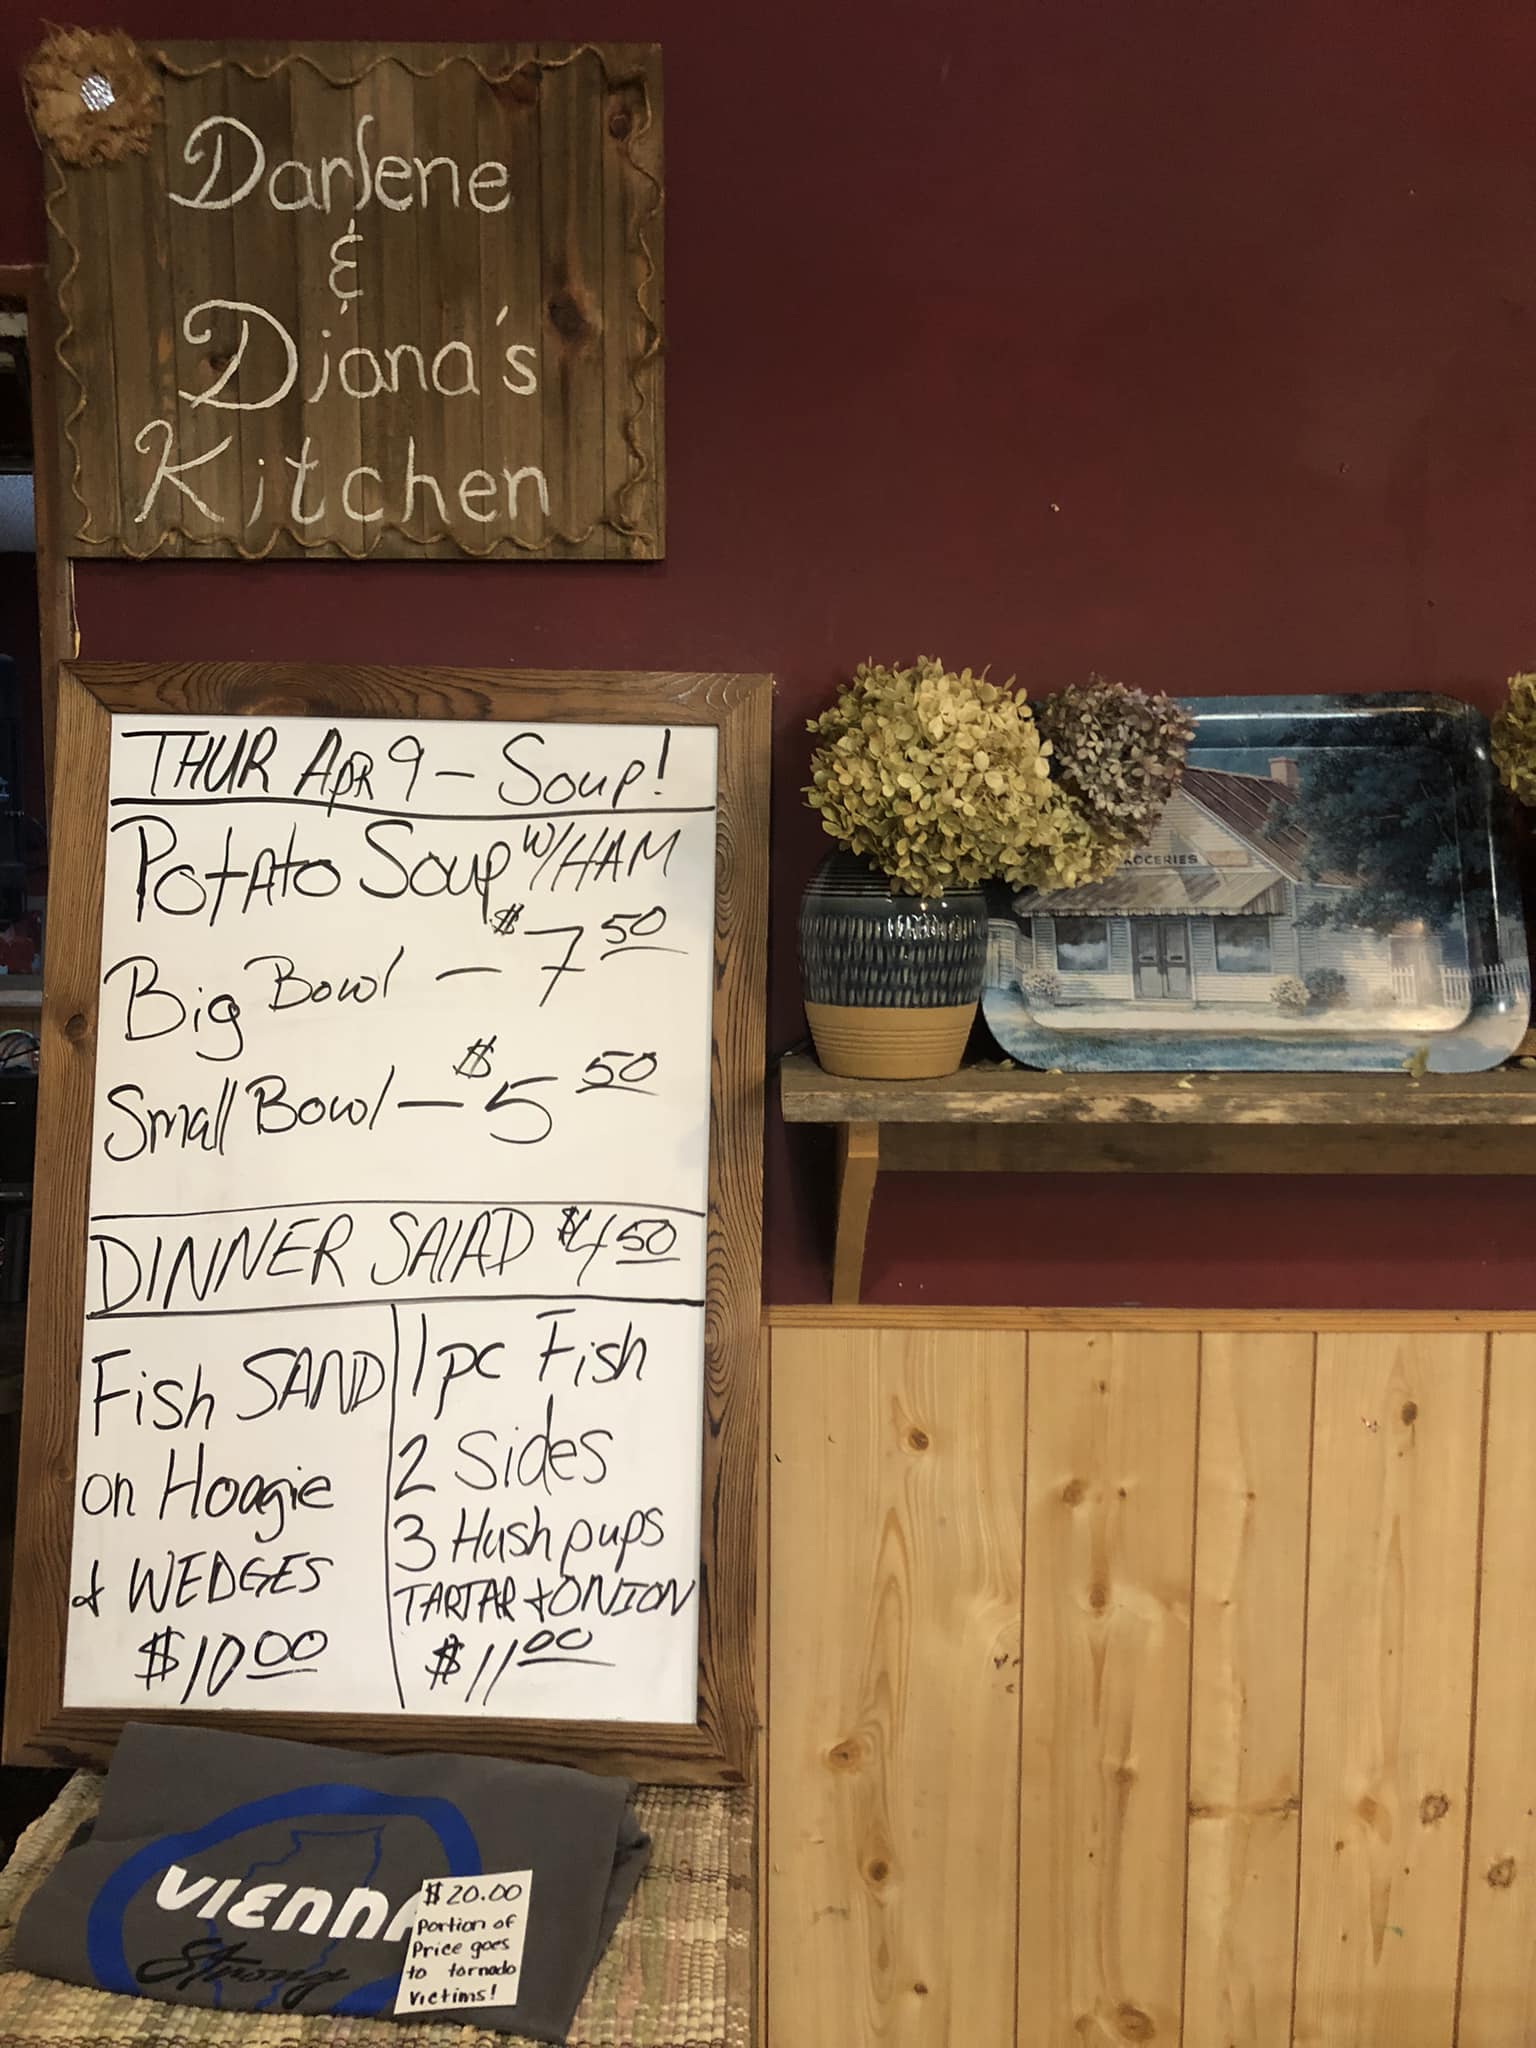 Darlene
&
Diana's
Kitchen
THUR Apr 9 – Soup!
Potato Soup w/HAM
Big Bowl – $7 50
Small Bowl – $5 50
DINNER SALAD $4 50
Fish SAND
on Hoagie
& WEDGES
$10 00
1 pc Fish
2 Sides
3 Hush pups
TARTAR & ONION
$11 00
OCERIES
VIENNA
Strong
$20.00
Portion of
Price goes
to tornado
victims!